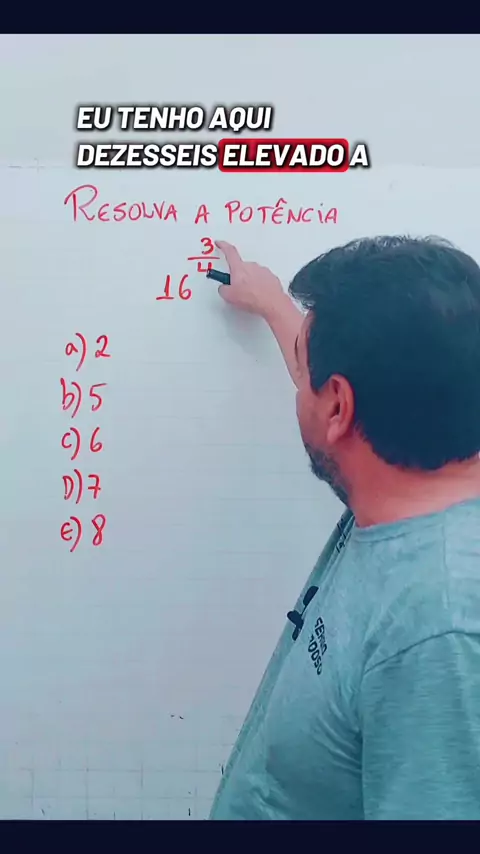 EU TENHO AQUI
DEZESSEIS ELEVADO A
RESOLVA A POTÊNCIA
3
4
16
a) 2
b) 5
c) 6
D) 7
e) 8